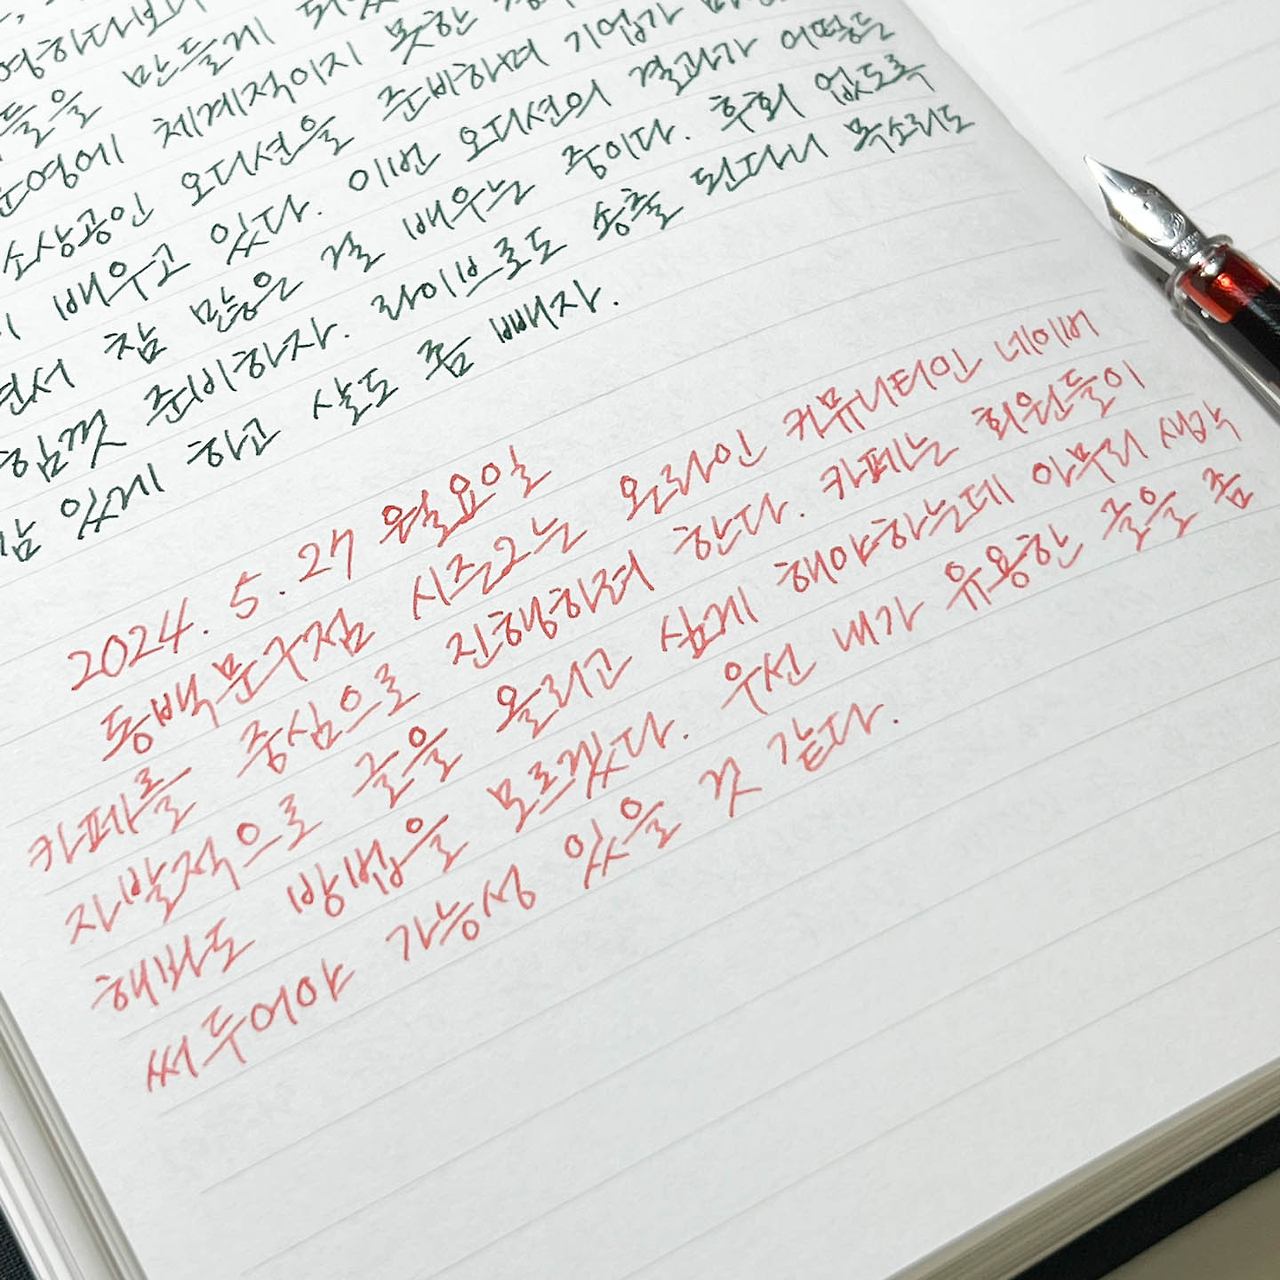 영하다보니
들을 만들게 되었
운영에 체계적이지 못한
소상공인 오디션을 준비하며 기업가
배우고 있다. 이번 오디션의 결과가 어떻든
면서 참 많은 걸 배우는 중이다. 후회 없도록
힘껏 준비하자. 라이브로도 송출 된다니 목소리도
감 있게 하고 살도 좀 빼자.
2024. 5. 27 월요일
동백문구점 시즌2는 온라인 커뮤니티인 네이버
카페를 중심으로 진행하려 한다. 카페는 회원들이
자발적으로 글을 올리고 쉽게 해야하는데 아무리 생각
해봐도 방법을 모르겠다. 우선 내가 유용한 글을 좀
써두어야 가능성 있을 것 같다.